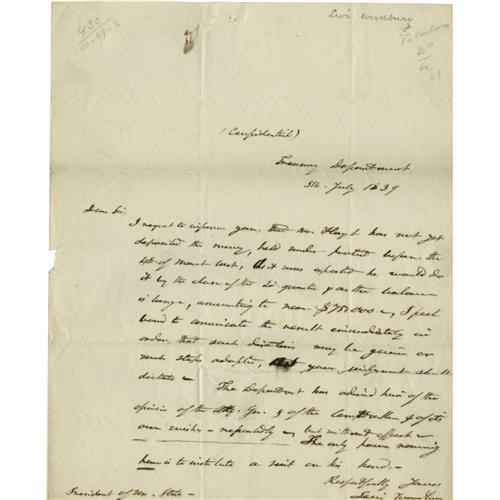 430
Levi Woodbury
(Confidential)
Treasury Department
5th July 1839
Dear Sir,
I regret to inform you, that Mr Hoyt has not yet
deposited the money, held under protest before the
4th of March last, tho it was expected he would do
it by the close of the 2d quarter & as the balance
is large, amounting to near $750.000 , I feel
bound to communicate the result immediately in
order that such direction may be given or
such steps adopted, as your judgment shall
dictate – The Department has advised him of the
opinion of the Atty. Gen. & of the Comptroller & of its
own wishes – repeatedly – but without effect –
The only power remaining
here is to institute a suit on his bond. –
Respectfully Yours
Levi Woodbury
President of Un. States –